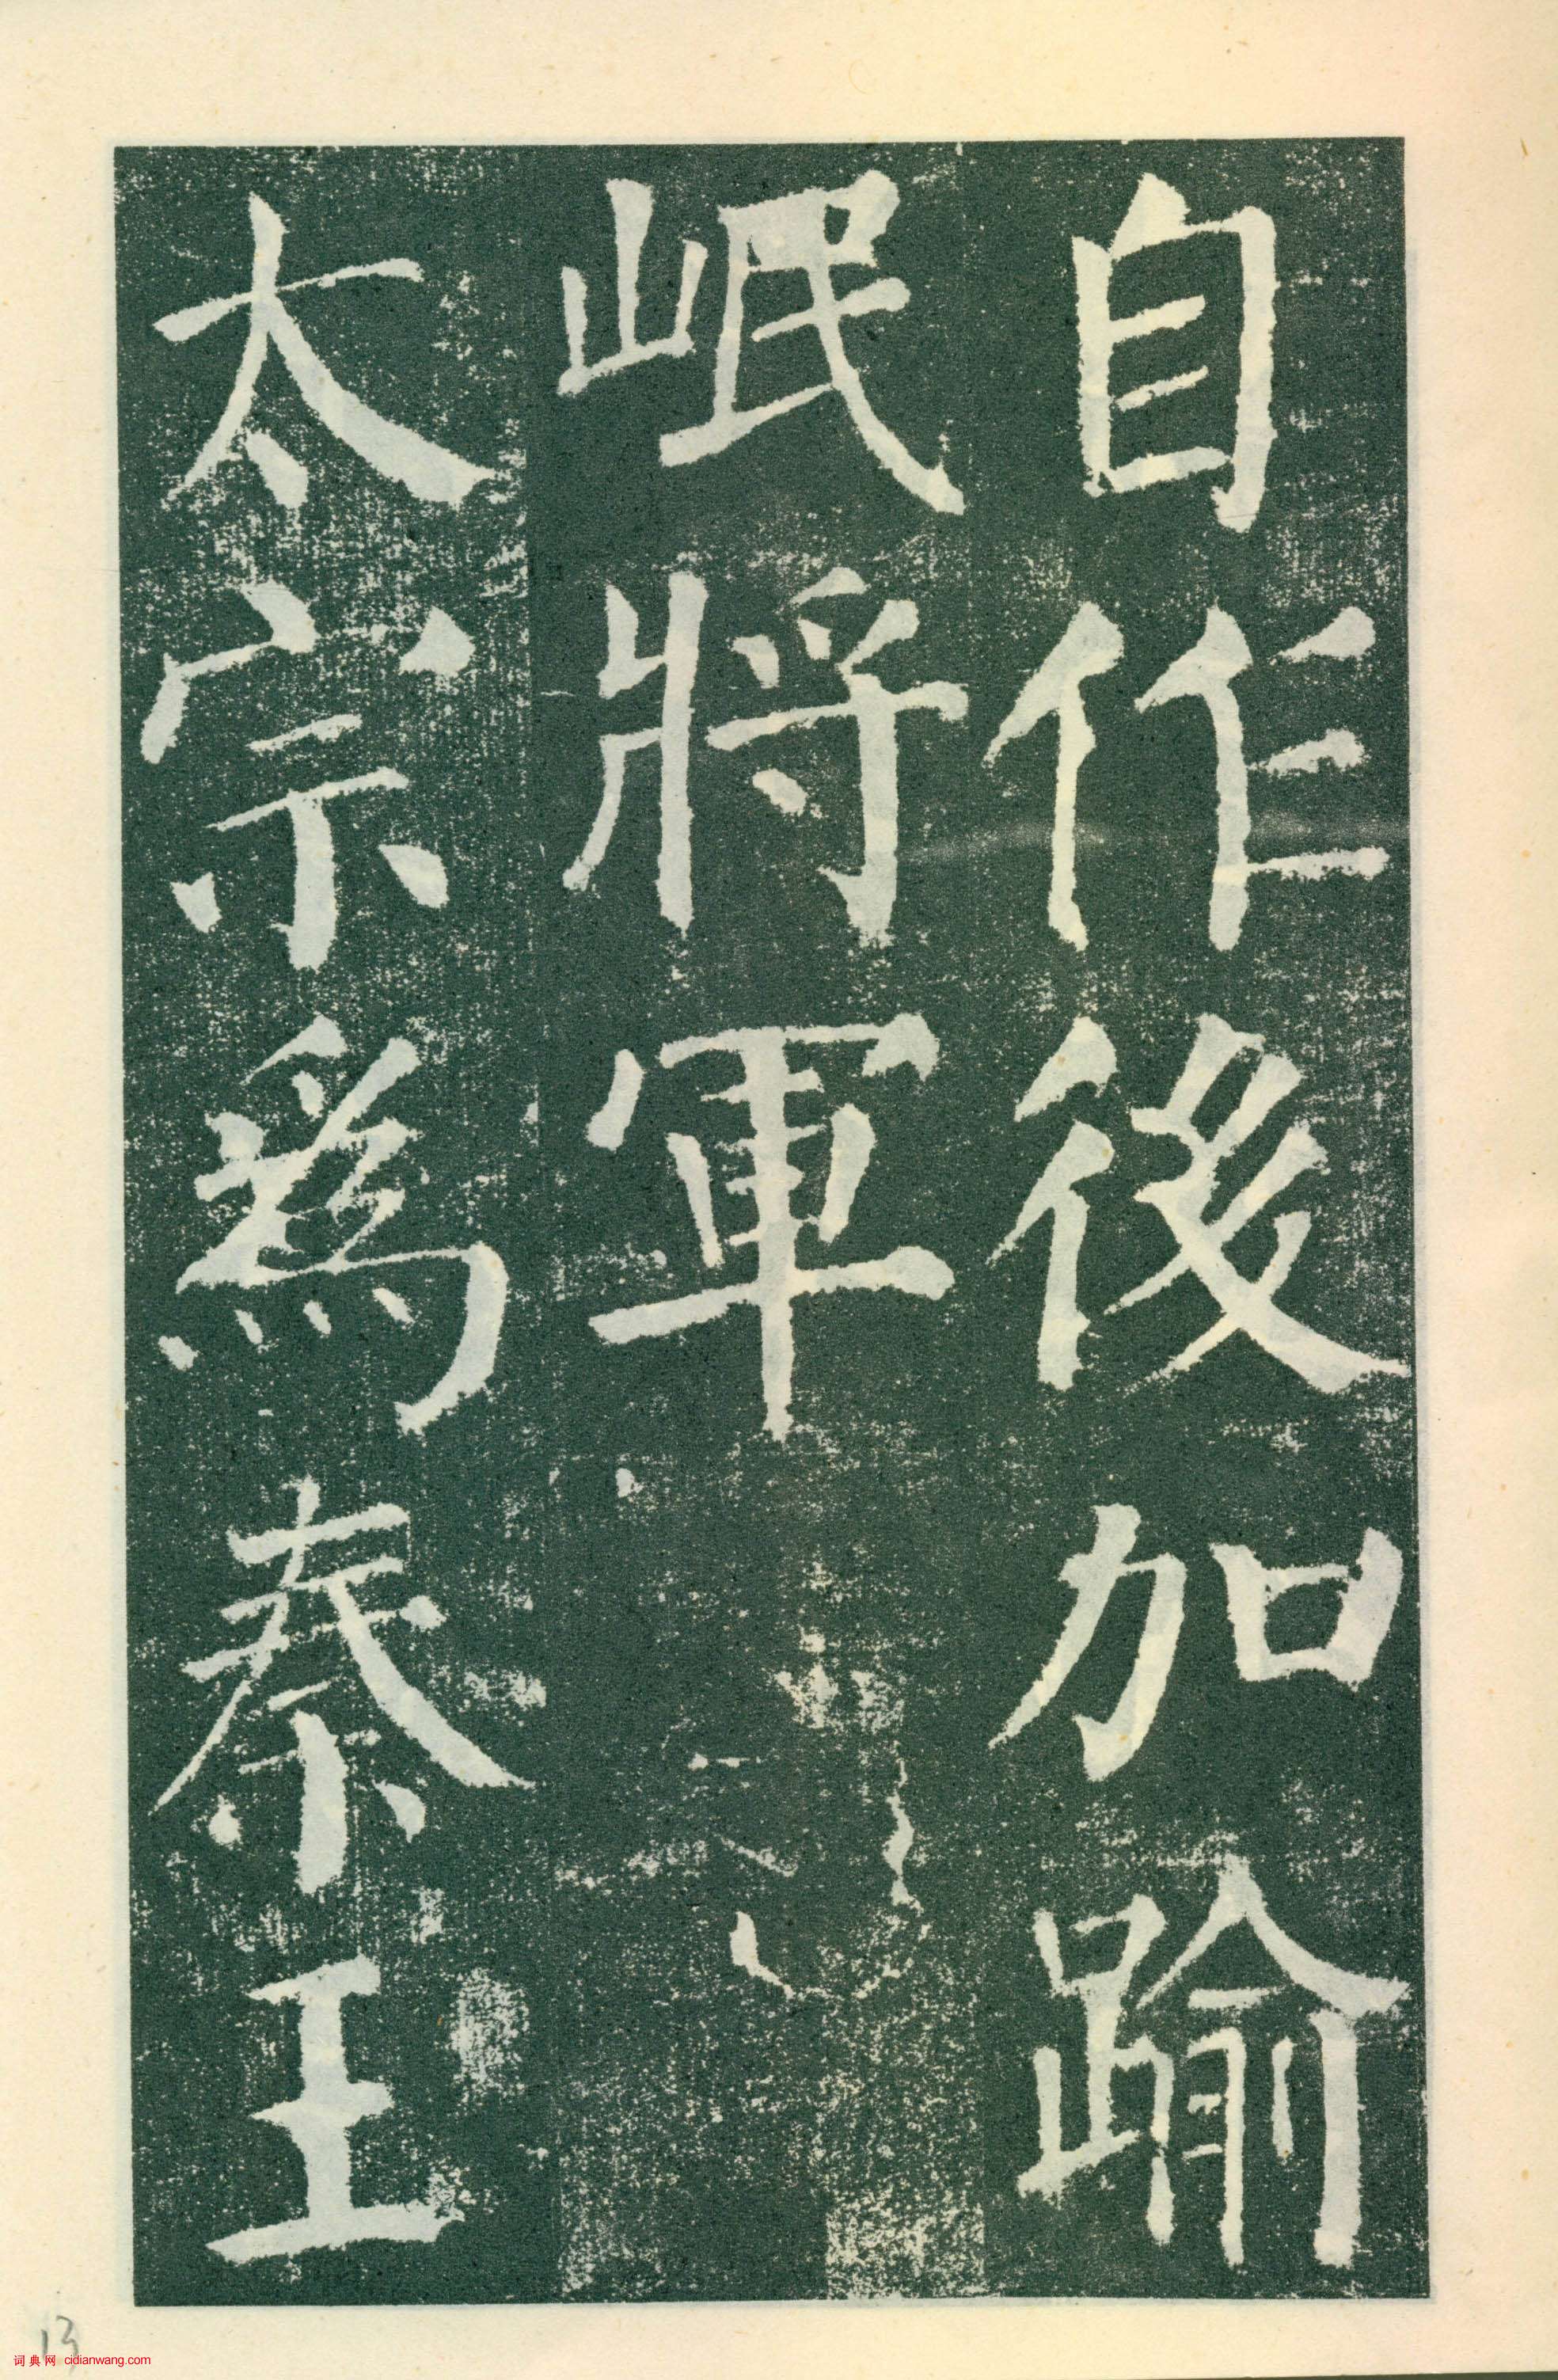 自作後加踰
岷將軍
太宗爲秦王
13
词典网 cidianwang.com